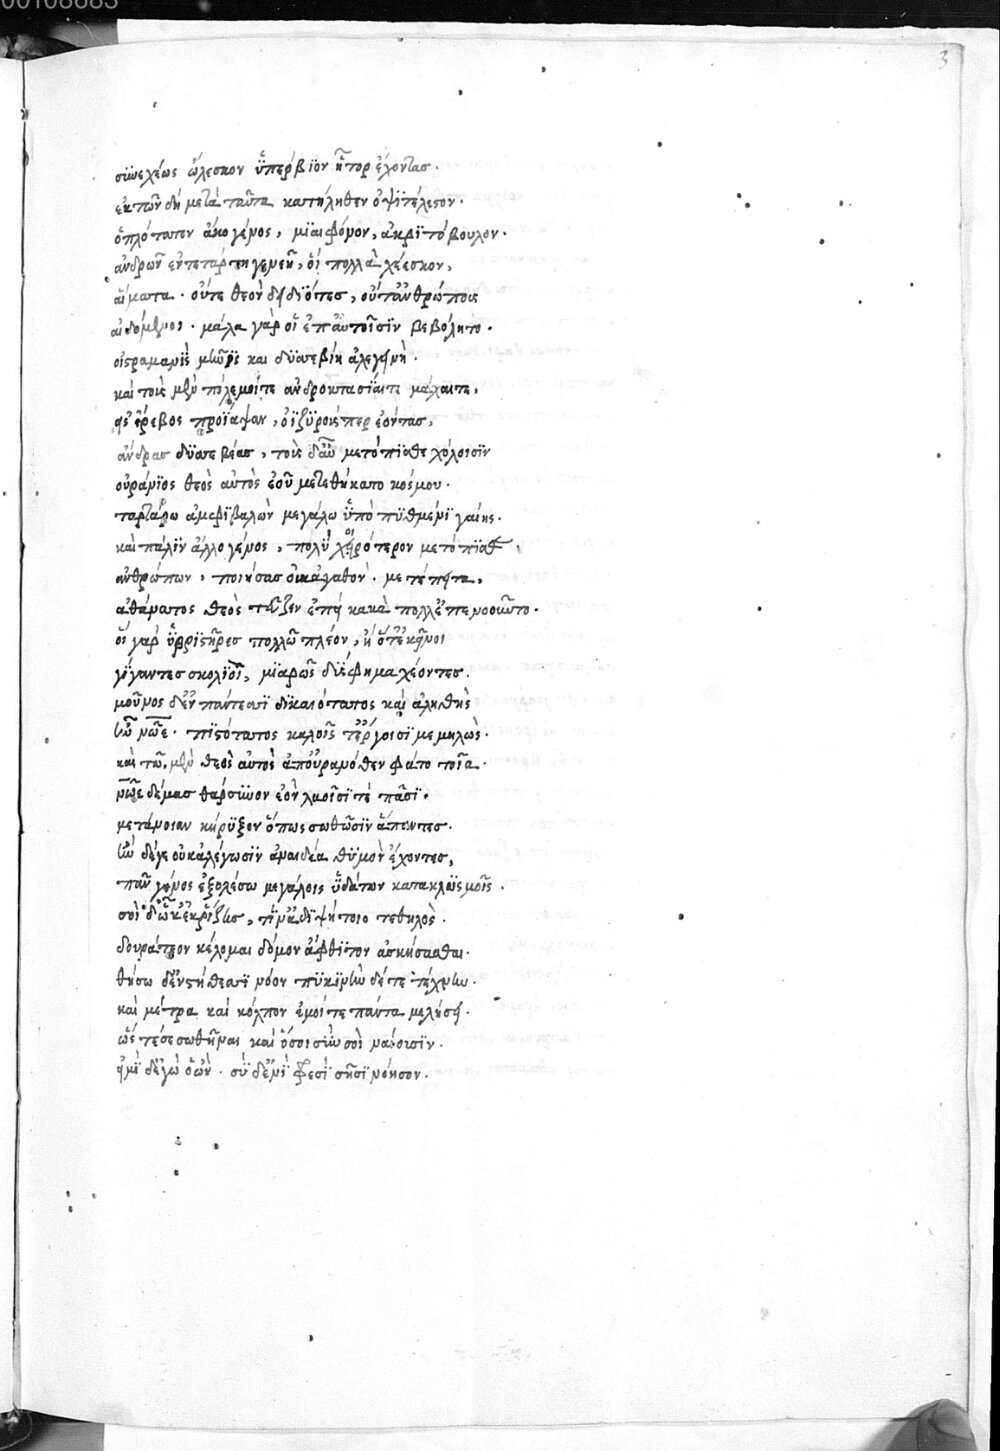 00108683
3
συνεχέως ὤλεσκον ὑπέρβϊον ἦτορ ἔχοντας·
ἐκ τῶν δὴ μετὰ ταῦτα κατήλυθεν ὀψϊτέλεστον·
ὁπλότατον ἀκο γένος, μϊαιφόνον, ἀκρϊτόβουλον·
ἀνδρῶν ἐν τετάρτη γενεῆ, οἳ πολλὰ χέεσκον,
αἵματα· οὔτε θεὸν δηδϊότες, οὔτ' ἀνθρώπους
αἰδόμενοι· μάλα γὰρ οἳ ἐπ' αὐτοῖσϊν βεβόλητο·
οἰστρομανὴς μῆνϊς καὶ δϋσσεβίη ἀλεγεινὴ·
καὶ τοὺς μὲν πόλεμοί τε ἀνδροκτασΐαι τε μάχαι τε,
εἰς ἔρεβος προΐαψαν, ὀϊζϋρούς περ ἐόντας,
ἄνδρας δϋσσεβέας, τοὺς δ' αὖ μετόπϊσθε χόλοισϊν
οὐράνϊος θεὸς αὐτὸς ἑοῦ μετεθήκατο κόσμου·
ταρτάρω ἀμφϊβαλὼν μεγάλω ὑπὸ πϋθμένϊ γαίης·
καὶ πάλϊν ἄλλο γένος, πολὺ χειρότερον μετόπϊσθε,
ἀνθρώπων, ποιήσας οὐκ ἀγαθόν· μετέπειτα,
ἀθάνατος θεὸς τεῦξεν ἐπεὶ κακὰ πολλ' ἐπενοοῦντο·
οἳ γὰρ ὑβρϊστῆρες πολλῶ πλέον, ἢ ὅτ' ἐκεῖνοι
γίγαντες σκολϊοὶ, μϊαρῶς δϋσφημα χέοντες·
μοῦνος δ' ἐν πάντεσσϊ δϊκαιότατος καὶ ἀληθὴς
ἦν νῶε· πϊστότατος καλοῖς τ' ἔργοισϊ μεμηλώς·
καὶ τῶ μὲν θεὸς αὐτὸς ἀπ' οὐρανόθεν φάτο τοῖα·
νῶε δέμας θάρσυνον ἑὸν λαοῖσϊ τὲ πᾶσϊ·
μετάνοιαν κήρϋξον ὅπως σωθῶσϊν ἅπαντες·
ἢν δέ γε οὐκ ἀλέγωσϊν ἀναιδέα θϋμὸν ἔχοντες,
πᾶν γένος ἐξολέσω μεγάλοις ὑδάτων κατακλϋσμοῖς·
δουράτεον κέλομαι δόμον ἄφθϊτον ἀσκήσασθαι·
θήσω δ' ἐν στήθεσσϊ νόον πϋκϊνὴν δέ τε τέχνην·
καὶ μέτρα καὶ κόλπον ἐμοί τε πάντα μελήσει·
ὥς τέ σε σωθῆναι καὶ ὅσοι σὺν σοὶ ναίουσϊν·
εἰμὶ δ' ἐγὼ ὁ ὤν· σὺ δ' ἐνὶ φρεσὶ σῆσϊ νόησον·